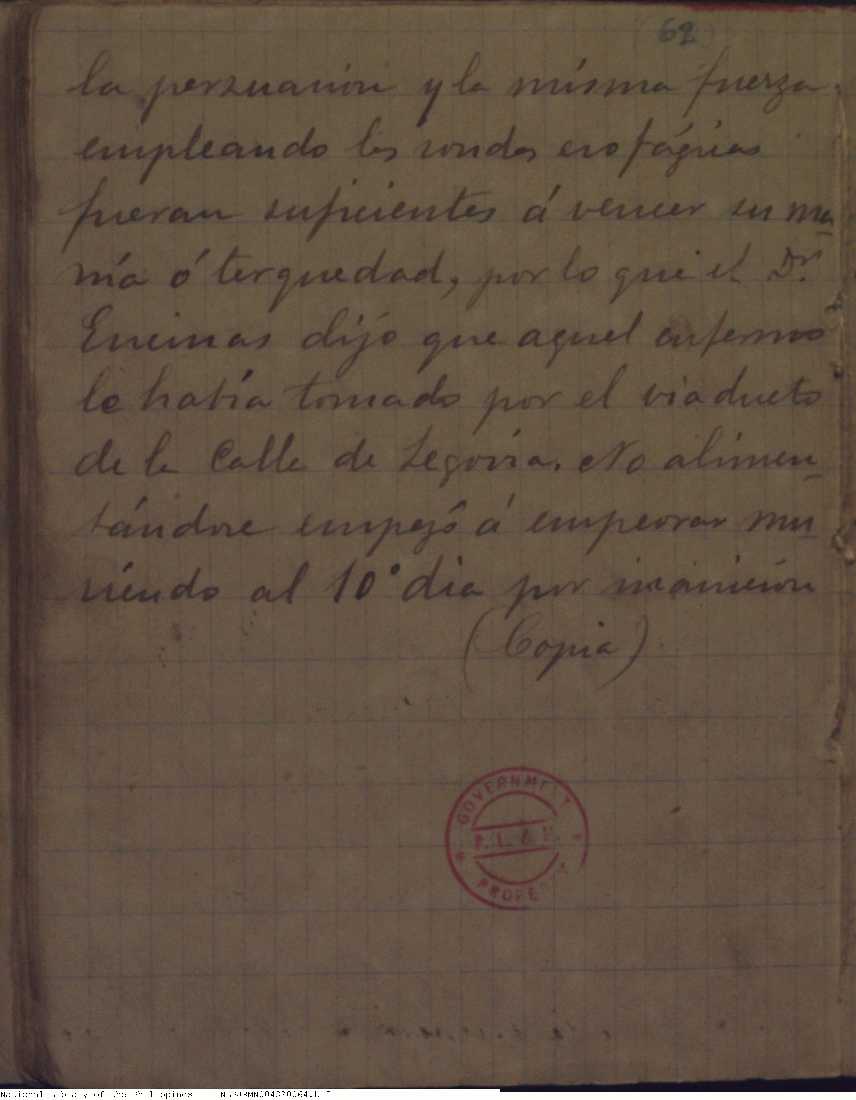 62
la persuación y la misma fuerza
empleando las sondas esofágicas
fueran suficientes á vencer su ma-
nía ó terquedad, por lo que el Dr.
Encinas dijo que aquel enfermo
lo había tomado por el viaducto
de la Calle de Segovia. No alimen-
tándose empezó á empeorar mu-
riendo al 10° dia por inanición
(Copia)
GOVERNMENT
PROPERTY
National Library of the Philippines